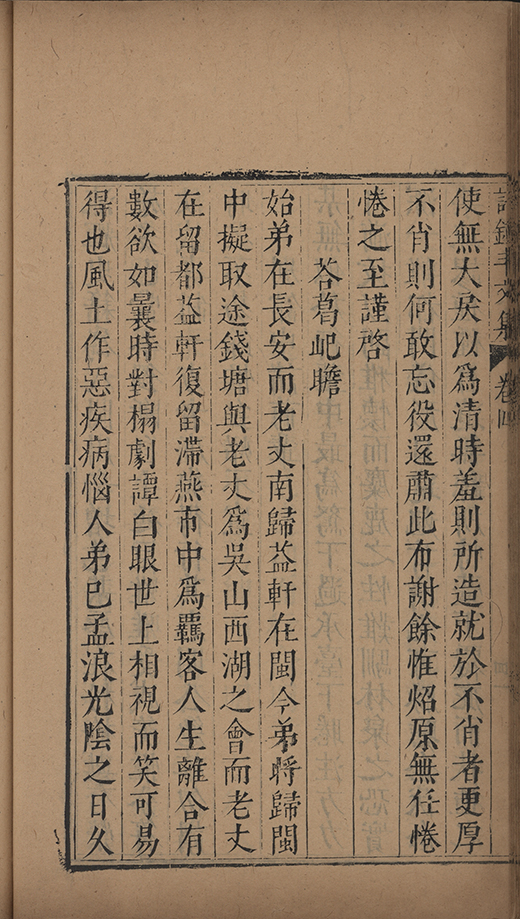 使無大戾以爲清時羞則所造就於不肖者更厚
不肖則何敢忘役還肅此布謝餘惟炤原無任惓
惓之至謹啓
答葛屺瞻
始弟在長安而老丈南歸益軒在閩今弟將歸閩
中擬取途錢塘與老丈爲吳山西湖之會而老丈
在留都益軒復留滯燕市中爲羈客人生離合有
數欲如曩時對榻劇譚白眼世上相視而笑可易
得也風土作惡疾病惱人弟已孟浪光陰之日久